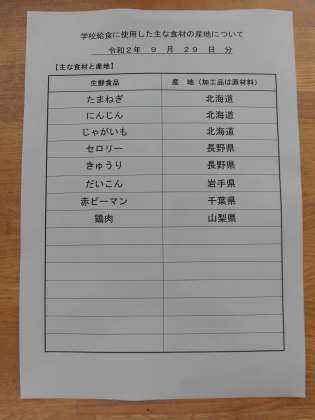 学校給食に使用した主な食材の産地について
令和２年 ９ 月 ２９ 日 分
【主な食材と産地】
生鮮食品 産 地（加工品は原材料）
たまねぎ 北海道
にんじん 北海道
じゃがいも 北海道
セロリー 長野県
きゅうり 長野県
だいこん 岩手県
赤ピーマン 千葉県
鶏肉 山梨県